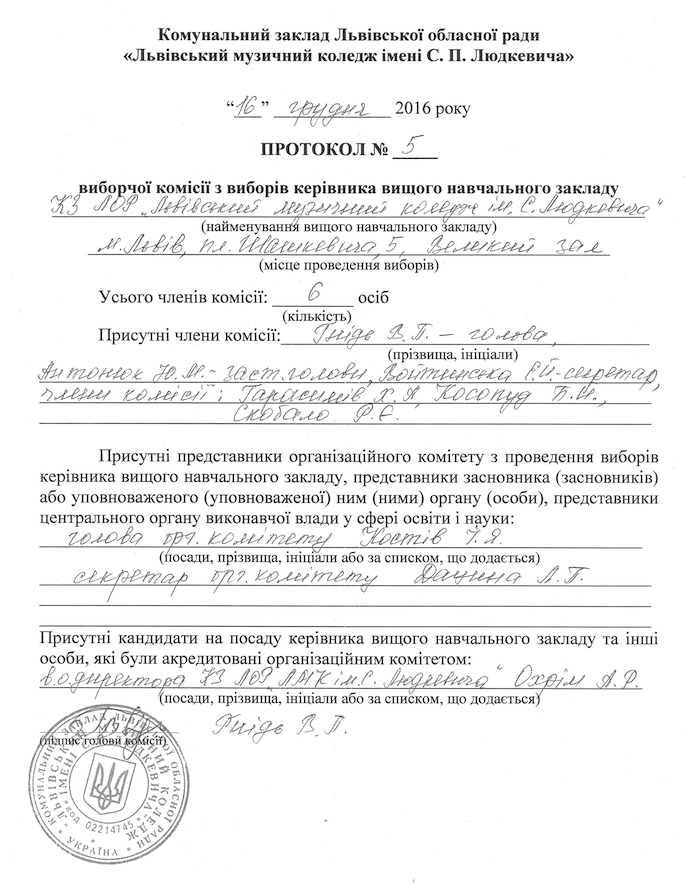 Комунальний заклад Львівської обласної ради
«Львівський музичний коледж імені С. П. Людкевича»
“16” грудня 2016 року
ПРОТОКОЛ № 5
виборчої комісії з виборів керівника вищого навчального закладу
КЗ ЛОР „Львівський музичний коледж ім. С. Людкевича“
(найменування вищого навчального закладу)
м. Львів, пл. Шашкевича, 5, Великий зал
(місце проведення виборів)
Усього членів комісії: 6 осіб
(кількість)
Присутні члени комісії: Гнідь В.П. – голова,
(прізвища, ініціали)
Антонюк Ю.М.- заст. голови, Войтинська Є.Й.-секретар,
члени комісії: Гарасимів Х.А, Косопуд Б.И.,
Скобало Р.Є.
Присутні представники організаційного комітету з проведення виборів
керівника вищого навчального закладу, представники засновника (засновників)
або уповноваженого (уповноваженої) ним (ними) органу (особи), представники
центрального органу виконавчої влади у сфері освіти і науки:
голова орг. комітету Костів І.Я.
(посади, прізвища, ініціали або за списком, що додається)
секретар орг. комітету Дацина Л.П.
Присутні кандидати на посаду керівника вищого навчального закладу та інші
особи, які були акредитовані організаційним комітетом:
в.о. директора КЗ ЛОР „ЛМК ім. С. Людкевича“ Охрім А.Р.
(посади, прізвища, ініціали або за списком, що додається)
Гнідь В.П.
(підпис голови комісії)
КОМУНАЛЬНИЙ ЗАКЛАД ЛЬВІВСЬКОЇ ОБЛАСНОЇ РАДИ * УКРАЇНА *
код 02214745